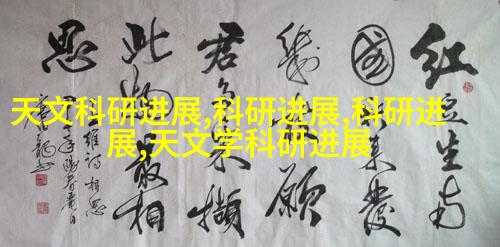 天文科研进展,科研进展,科研进
展,天文学科研进展
红豆生南
國春来發
幾枝願
君多采撷
此物最相
思
维诗相思